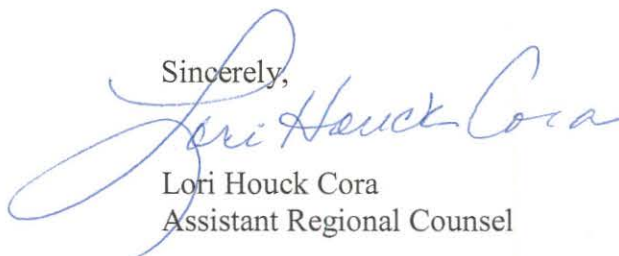 Sincerely,
Lori Houck Cora
Lori Houck Cora
Assistant Regional Counsel